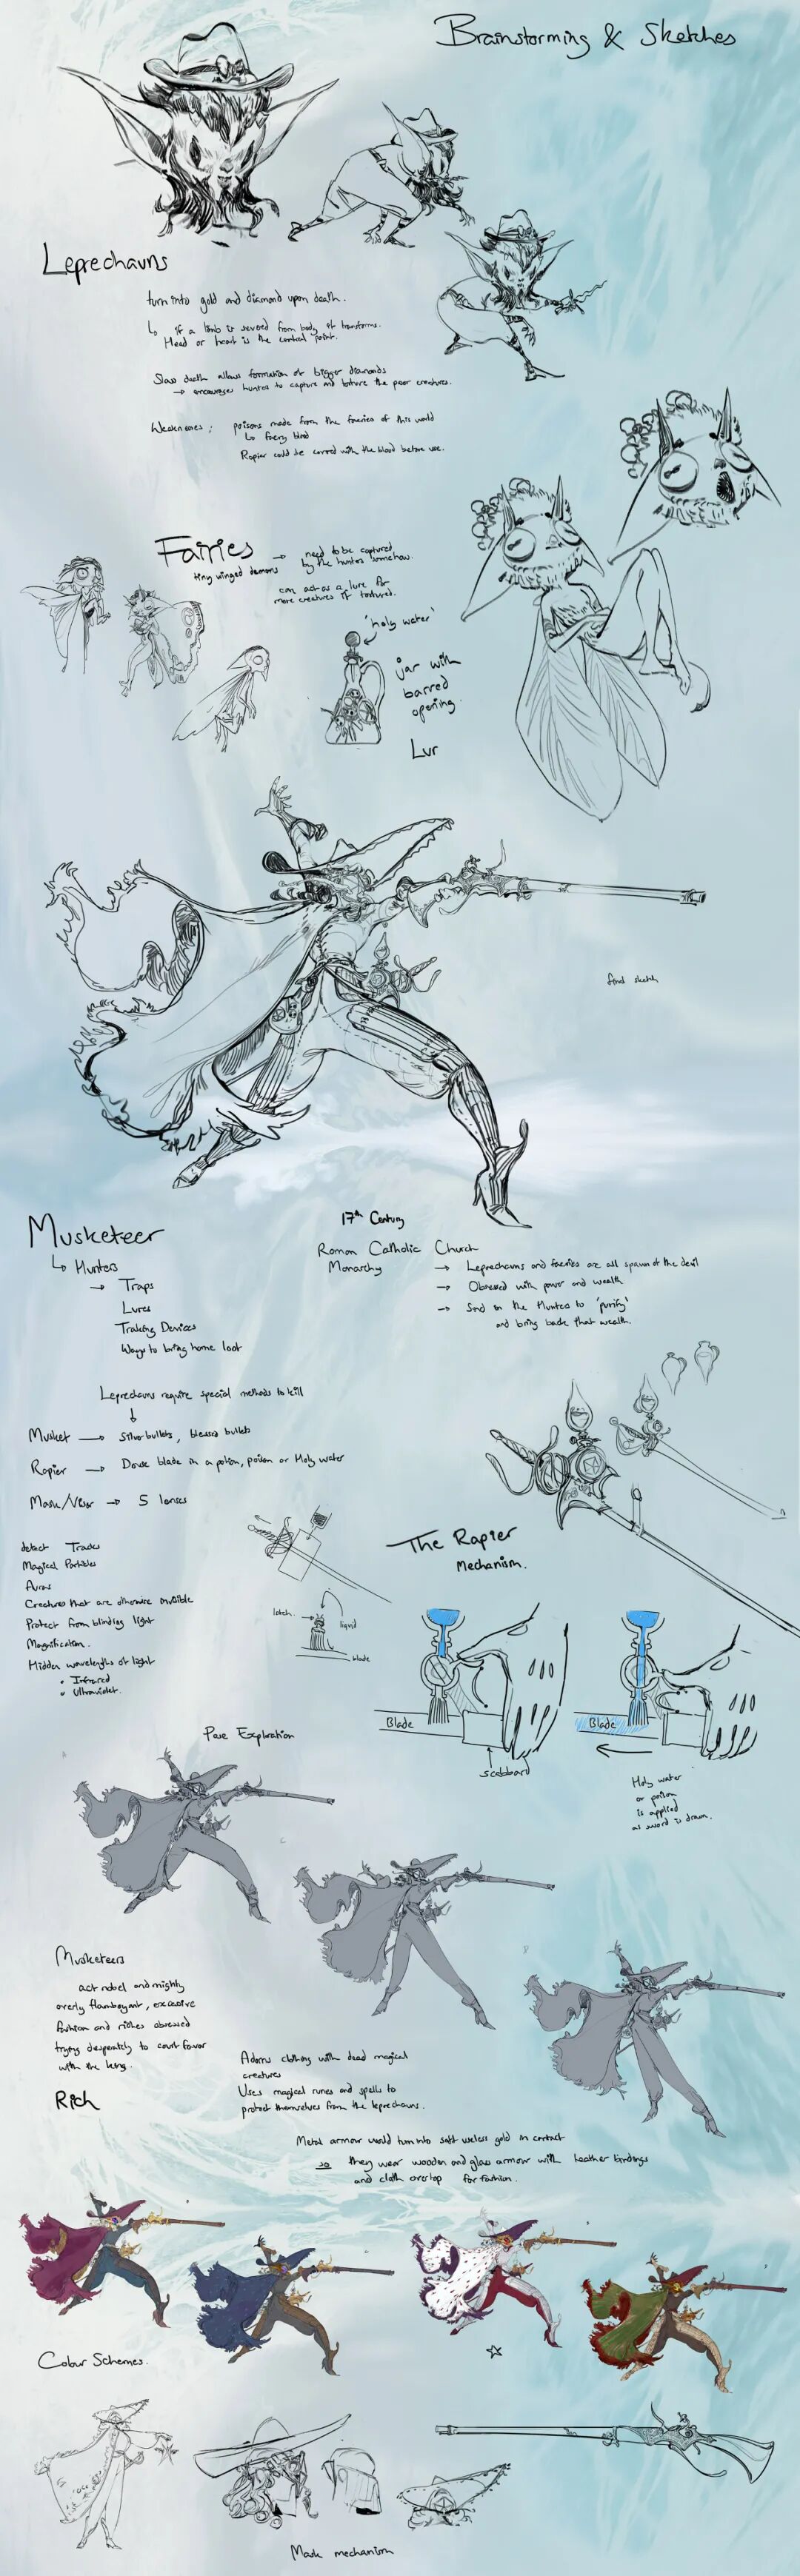 Brainstorming & Sketches
Leprechauns
turn into gold and diamond upon death.
↳ if a limb is severed from body it transforms.
Head or heart is the central point.
Slow death allows formation of bigger diamonds
→ encourages hunters to capture and torture the poor creatures.
Weaknesses: poisons made from the faeries of this world
↳ faery blood
Rapier could be covered with the blood before use.
Fairies → need to be captured
by the hunters somehow.
tiny winged demons
can act as a lure for
more creatures if tortured.
'holy water'
jar with
barred
opening.
Lur
final sketch
Musketeer
↳ Hunters
→ Traps
Lures
Traking Devices
Ways to bring home loot
17th Century
Roman Catholic Church
Monarchy
→ Leprechauns and faeries are all spawn of the devil
→ Obsessed with power and wealth
→ Send in the Hunters to 'purify'
and bring back that wealth.
Leprechauns require special methods to kill
↓
Musket → Silver bullets, blessed bullets
Rapier → Douse blade in a potion, poison or Holy water
Mask/Visor → 5 lenses
detect Tracks
Magical Particles
Auras
Creatures that are otherwise invisible
Protect from blinding light
Magnification.
Hidden wavelengths of light
• Infrared
• Ultraviolet.
The Rapier
Mechanism.
latch
liquid
blade
Blade
scabbard
Blade
Holy water
or poison
is applied
as sword is drawn.
Pose Exploration
Musketeers
act nobel and mighty
overly flamboyant, excessive
fashion and riches obsessed
trying desperately to court favor
with the king.
Rich
Adorns clothing with dead magical
creatures
Uses magical runes and spells to
protect themselves from the leprechauns.
Metal armour would turn into soft useless gold on contact
so they wear wooden and glass armour with leather bindings
and cloth overtop for fashion.
Colour Schemes.
Mask mechanism